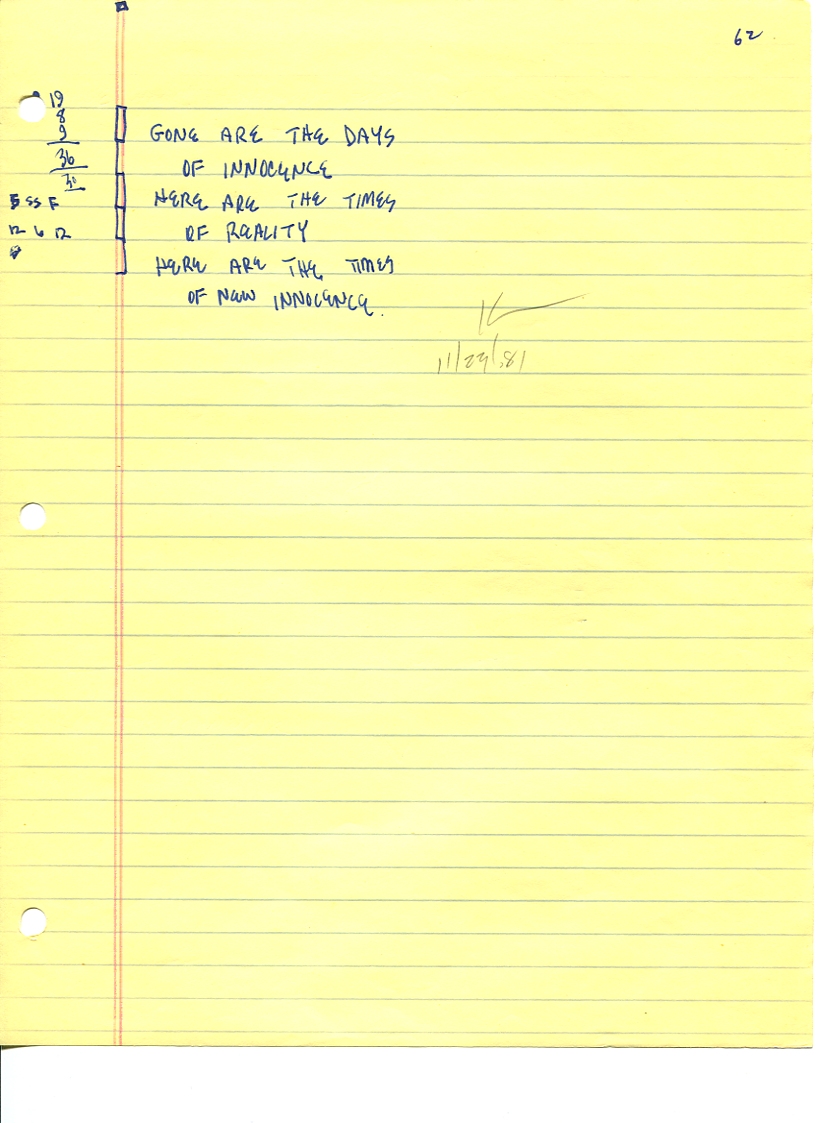 62
19
8
9
36
30
GONE ARE THE DAYS
OF INNOCENCE
5 SS F HERE ARE THE TIMES
12 6 12 OF REALITY
HERE ARE THE TIMES
OF NEW INNOCENCE.